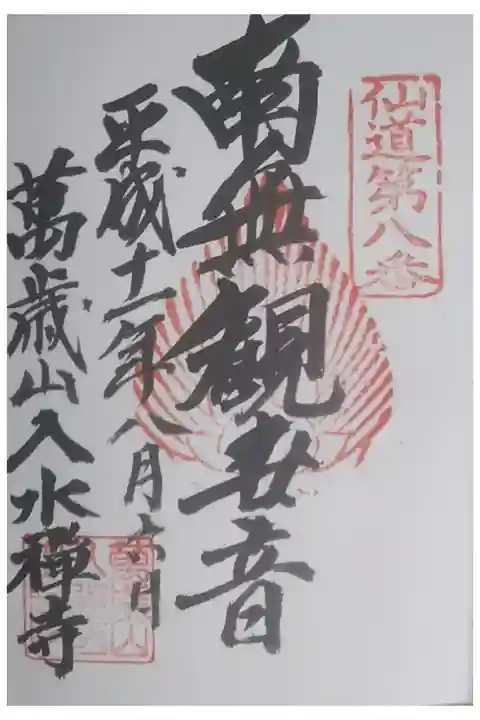 仙道第八番
南無観世音
平成十一年八月六日
萬歳山入水禅寺